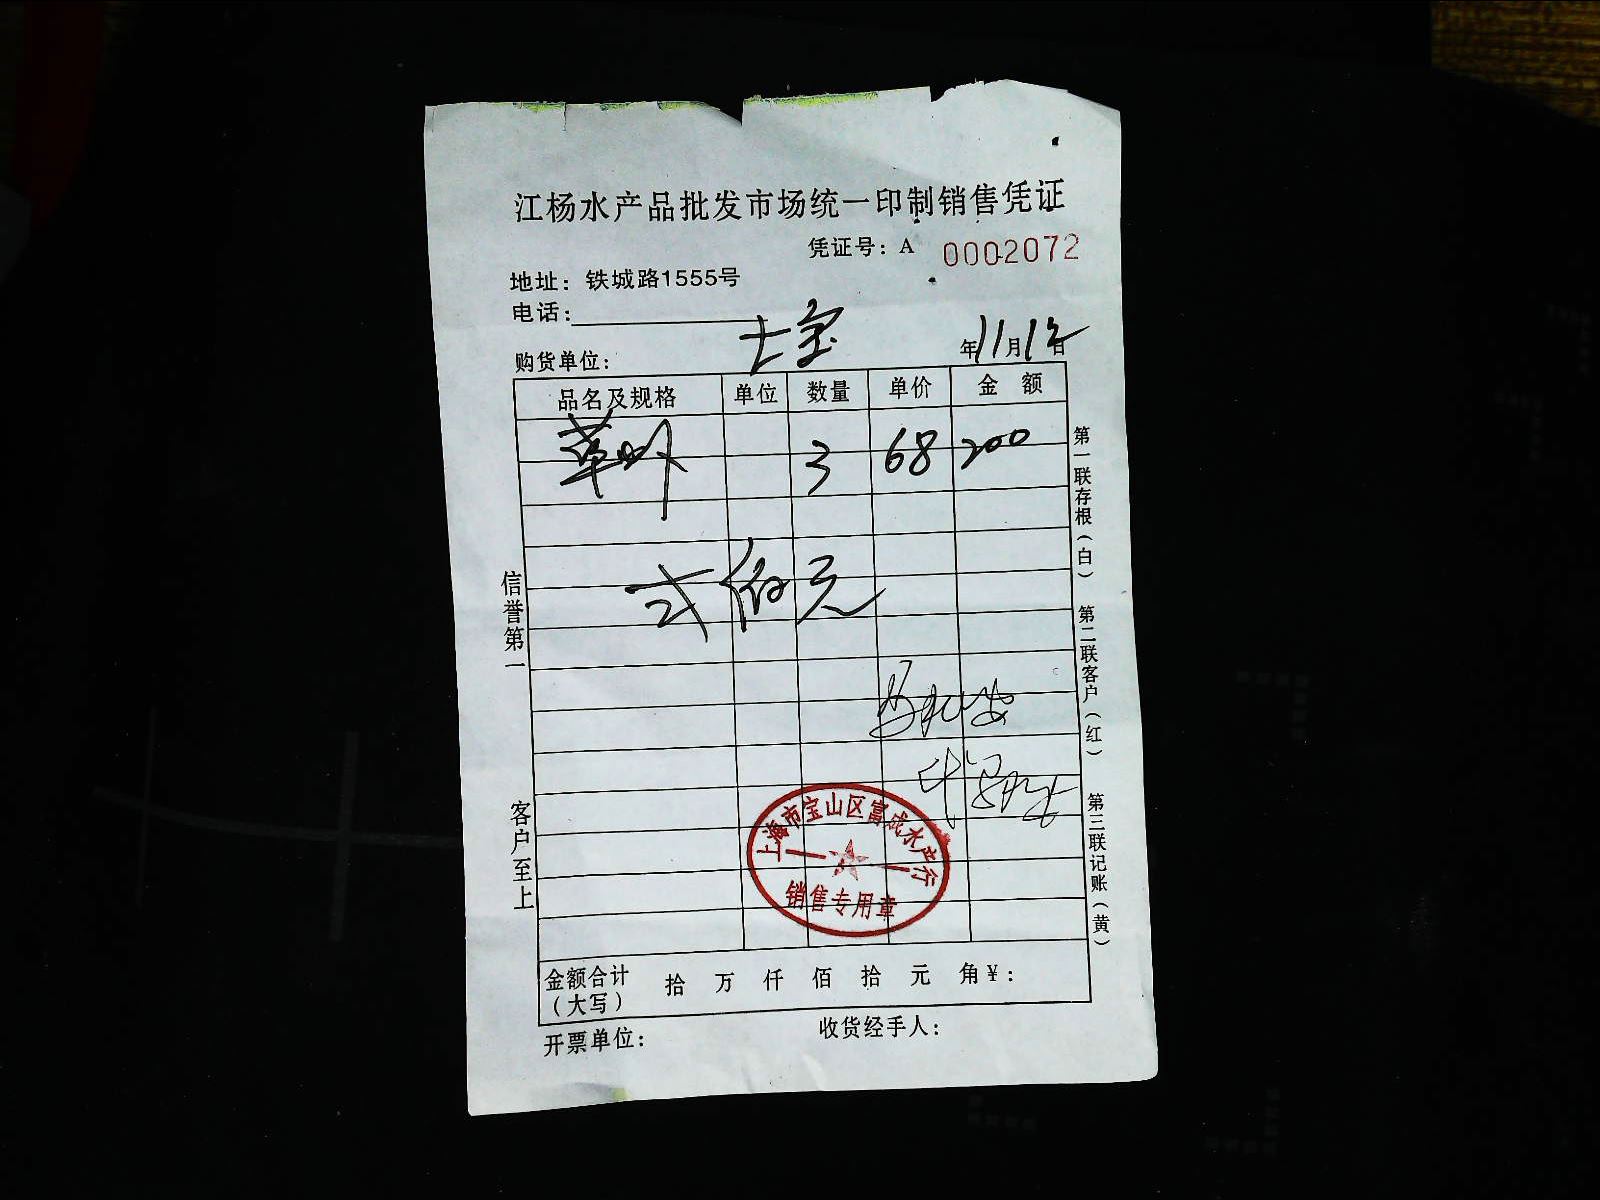 江杨水产品批发市场统一印制销售凭证
凭证号：A 0002072
地址：铁城路1555号
电话：
购货单位： 七宝 年11月12日
品名及规格 单位 数量 单价 金额
草虾 3 68 200
弍佰元
信誉第一
客户至上
第一联存根（白） 第二联客户（红） 第三联记账（黄）
上海市宝山区富成水产行
销售专用章
金额合计（大写） 拾 万 仟 佰 拾 元 角￥：
开票单位： 收货经手人：